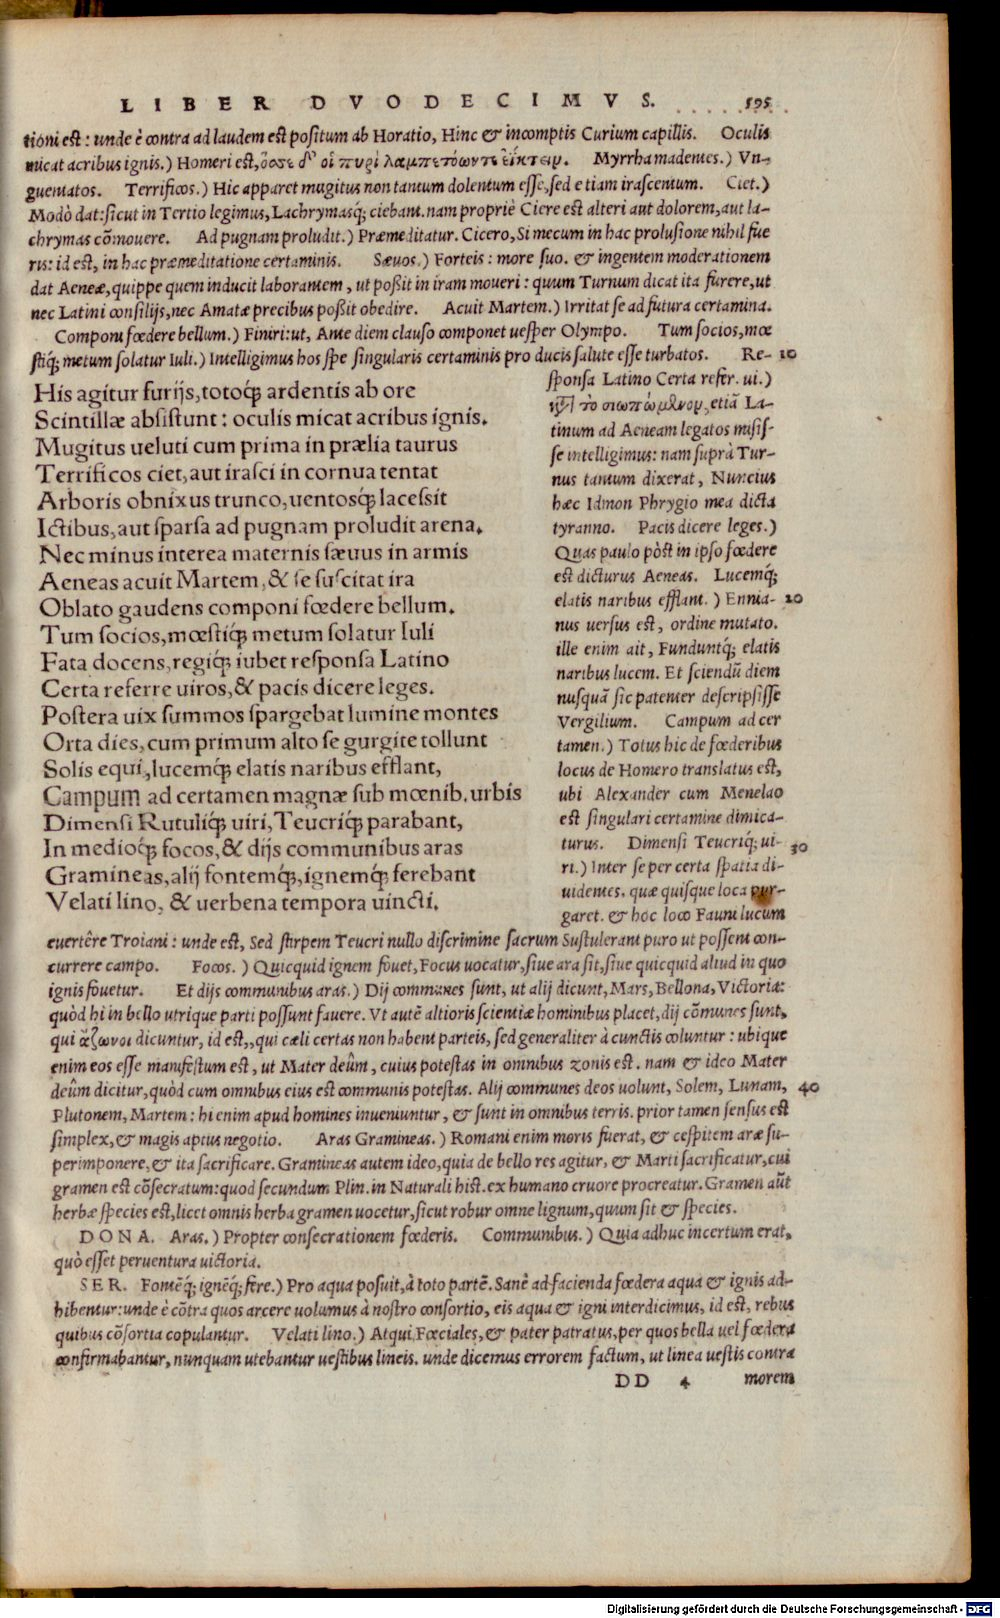 LIBER DVODECIMVS. 595
tioni est: unde è contra ad laudem est positum ab Horatio, Hinc & incomptis Curium capillis. Oculis
micat acribus ignis.) Homeri est, ὄσσε δ' οἱ πυρὶ λαμπετόωντι ἐΐκτην. Myrrha madentes.) Vn-
guentatos. Terrificos.) Hic apparet mugitus non tantum dolentum esse, sed etiam irascentum. Ciet.)
Modò dat: sicut in Tertio legimus, Lachrymasq; ciebant. nam propriè Ciere est alteri aut dolorem, aut la-
chrymas cõmouere. Ad pugnam proludit.) Præmeditatur. Cicero, Si mecum in hac prolusione nihil fue
ris: id est, in hac præmeditatione certaminis. Sæuos.) Forteis: more suo. & ingentem moderationem
dat Aeneæ, quippe quem inducit laborantem, ut poßit in iram moueri: quum Turnum dicat ita furere, ut
nec Latini consilijs, nec Amatæ precibus poßit obedire. Acuit Martem.) Irritat se ad futura certamina.
Componi fœdere bellum.) Finiri: ut, Ante diem clauso componet uesper Olympo. Tum socios, mœ
stiq; metum solatur Iuli.) Intelligimus hos spe singularis certaminis pro ducis salute esse turbatos. Re- 10
His agitur furijs, totoq; ardentis ab ore
Scintillæ absistunt: oculis micat acribus ignis.
Mugitus ueluti cum prima in prælia taurus
Terrificos ciet, aut irasci in cornua tentat
Arboris obnixus trunco, uentosq; lacessit
Ictibus, aut sparsa ad pugnam proludit arena.
Nec minus interea maternis sæuus in armis
Aeneas acuit Martem, & se suscitat ira
Oblato gaudens componi fœdere bellum.
Tum socios, mœstiq; metum solatur Iuli
Fata docens, regiq; iubet responsa Latino
Certa referre uiros, & pacis dicere leges.
Postera uix summos spargebat lumine montes
Orta dies, cum primum alto se gurgite tollunt
Solis equi, lucemq; elatis naribus efflant,
Campum ad certamen magnæ sub mœnib. urbis
Dimensi Rutuliq; uiri, Teucriq; parabant,
In medioq; focos, & dijs communibus aras
Gramineas, alij fontemq;, ignemq; ferebant
Velati lino, & uerbena tempora uincti.
sponsa Latino Certa refer. ui.)
τὸ σιωπώμενον, etiã La-
tinum ad Aeneam legatos misis-
se intelligimus: nam suprà Tur-
nus tantum dixerat, Nuncius
hæc Idmon Phrygio mea dicta
tyranno. Pacis dicere leges.)
Quas paulo pòst in ipso fœdere
est dicturus Aeneas. Lucemq;
elatis naribus efflant.) Ennia- 20
nus uersus est, ordine mutato.
ille enim ait, Funduntq; elatis
naribus lucem. Et sciendũ diem
nusquã sic patenter descripsisse
Vergilium. Campum ad cer
tamen.) Totus hic de fœderibus
locus de Homero translatus est,
ubi Alexander cum Menelao
est singulari certamine dimica-
turus. Dimensi Teucriq; ui- 30
ri.) Inter se per certa spatia di-
uidentes. quæ quisque loca pur-
garet. & hoc loco Fauni lucum
euertêre Troiani: unde est, Sed stirpem Teucri nullo discrimine sacrum Sustulerant puro ut possent con-
currere campo. Focos.) Quicquid ignem fouet, Focus uocatur, siue ara sit, siue quicquid aliud in quo
ignis fouetur. Et dijs communibus aras.) Dij communes sunt, ut alij dicunt, Mars, Bellona, Victoria:
quòd hi in bello utrique parti possunt fauere. Vt autẽ altioris scientiæ hominibus placet, dij cõmunes sunt,
qui ἄζωνοι dicuntur, id est,, qui cæli certas non habent parteis, sed generaliter à cunctis coluntur: ubique
enim eos esse manifestum est, ut Mater deûm, cuius potestas in omnibus zonis est. nam & ideo Mater
deûm dicitur, quòd cum omnibus eius est communis potestas. Alij communes deos uolunt, Solem, Lunam, 40
Plutonem, Martem: hi enim apud homines inueniuntur, & sunt in omnibus terris. prior tamen sensus est
simplex, & magis aptus negotio. Aras Gramineas.) Romani enim moris fuerat, & cespitem aræ su-
perimponere, & ita sacrificare. Gramineas autem ideo, quia de bello res agitur, & Marti sacrificatur, cui
gramen est cõsecratum: quod secundum Plin. in Naturali hist. ex humano cruore procreatur. Gramen aũt
herbæ species est, licet omnis herba gramen uocetur, sicut robur omne lignum, quum sit & species.
DONA. Aras.) Propter consecrationem fœderis. Communibus.) Quia adhuc incertum erat,
quò esset peruentura uictoria.
SER. Fontẽq; ignẽq; fere.) Pro aqua posuit, à toto partẽ. Sanè ad facienda fœdera aqua & ignis ad-
hibentur: unde è cõtra quos arcere uolumus à nostro consortio, eis aqua & igni interdicimus, id est, rebus
quibus cõsortia copulantur. Velati lino.) Atqui Fœciales, & pater patratus, per quos bella uel fœdera
confirmabantur, nunquam utebantur uestibus lineis. unde dicemus errorem factum, ut linea uestis contra
DD 4 morem
Digitalisierung gefördert durch die Deutsche Forschungsgemeinschaft - DFG